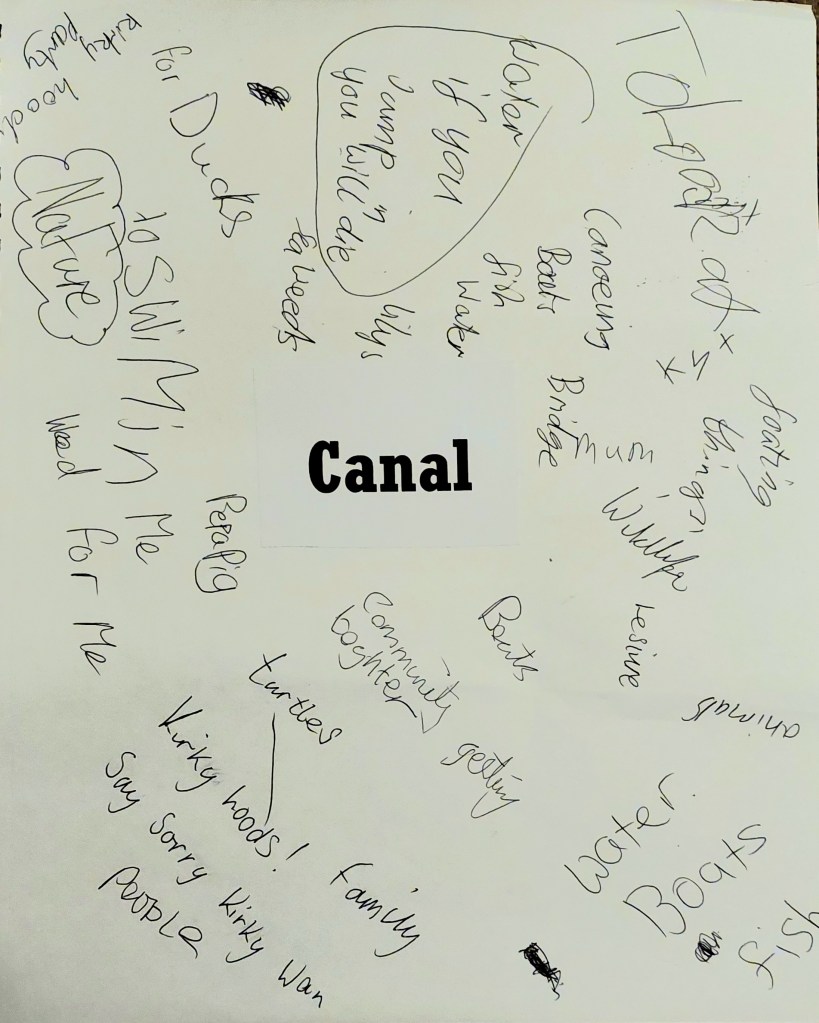 kirky
party
hoods
for Ducks
Nature
to SWiMin
Me
Weed for Me
Water
if you
Jump in
you will die
Seaweeds
lilys
Water
fish
Boats
Canoeing
To Look at
things
floating
Bridge
mum
Wildlife
Lesiure
Canal
PepaPig
Community
getting
Boats
animals
turtles
Kirky hoods!
Say Sorry Kirky Wan
PeoPLe
Family
Water
Boats